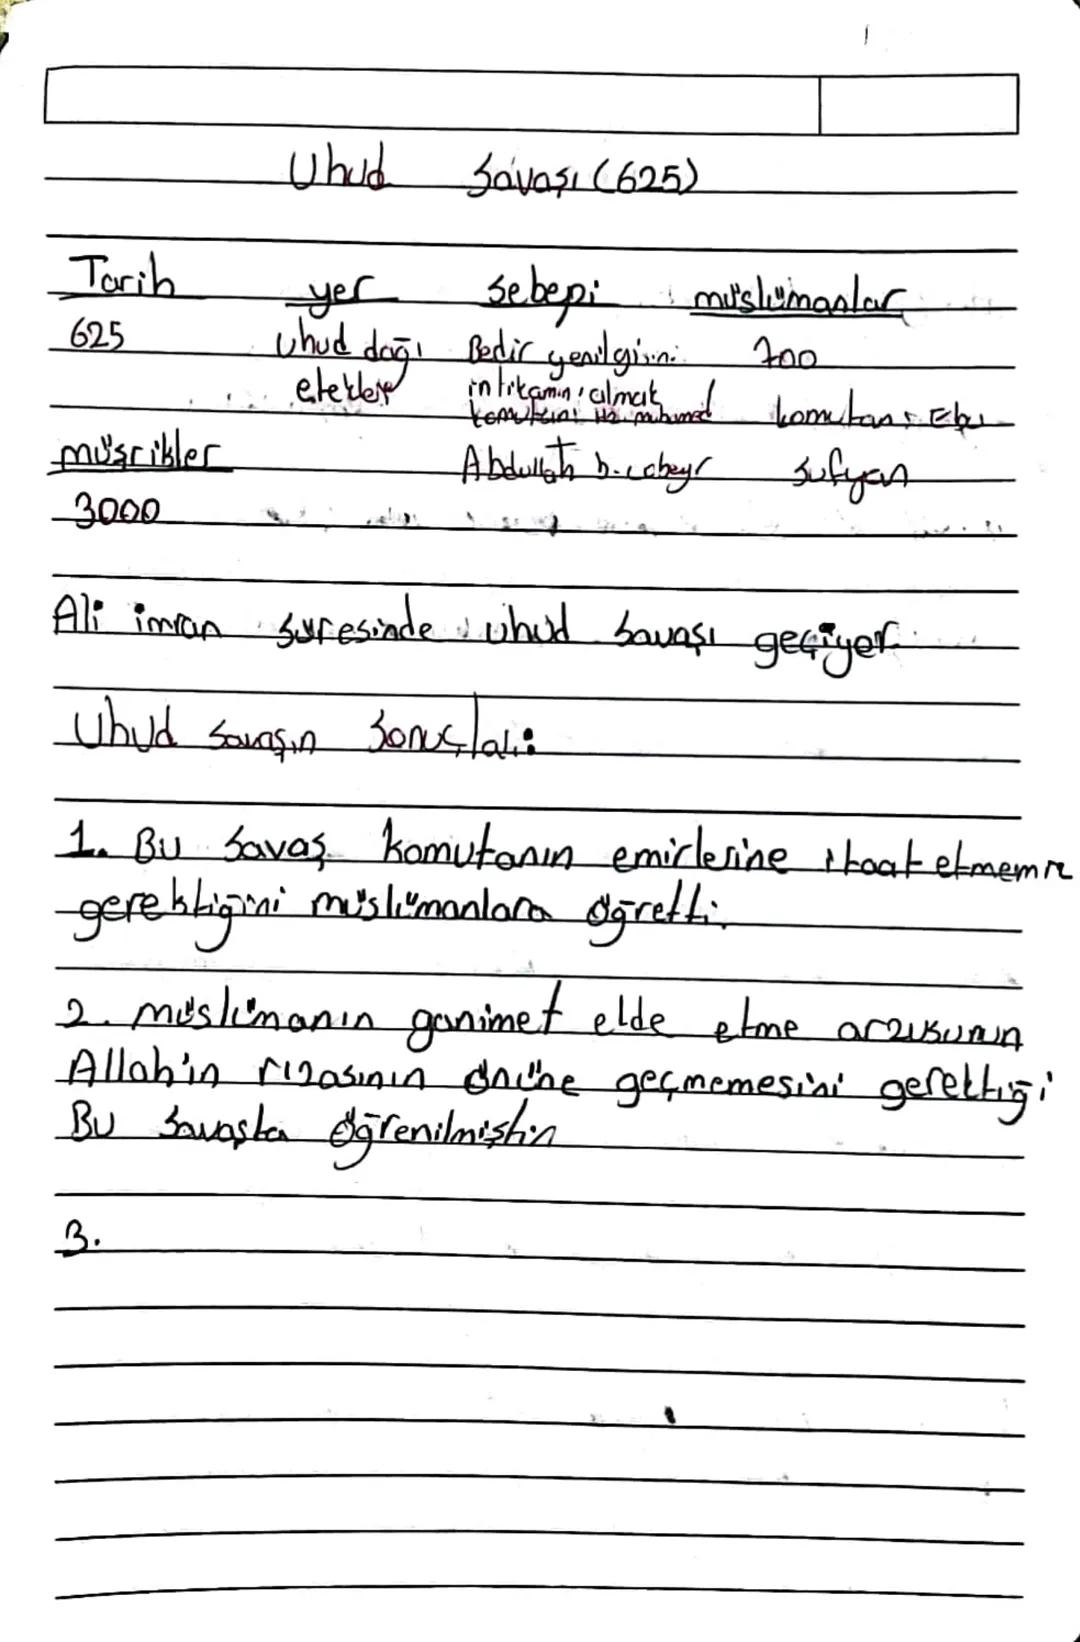 Uhud Savaşı (625)
Tarih yer sebepi müslümanlar
625 Uhud dağı Bedir yenilgisini 700
etekleri intikamını almak
komutanı Hz. muhamed komutanı Ebu
müşrikler Abdullah b. cubeyr sufyan
3000
Ali imran suresinde uhud savaşı geçiyor.
Uhud savaşın sonuçları:
1. Bu savaş komutanın emirlerine itaat etmemiz
gerektiğini müslümanlara öğretti.
2. müslümanın ganimet elde etme arzusunun
Allah'ın rızasının önüne geçmemesini gerektiği
Bu savaşta öğrenilmiştir
3.